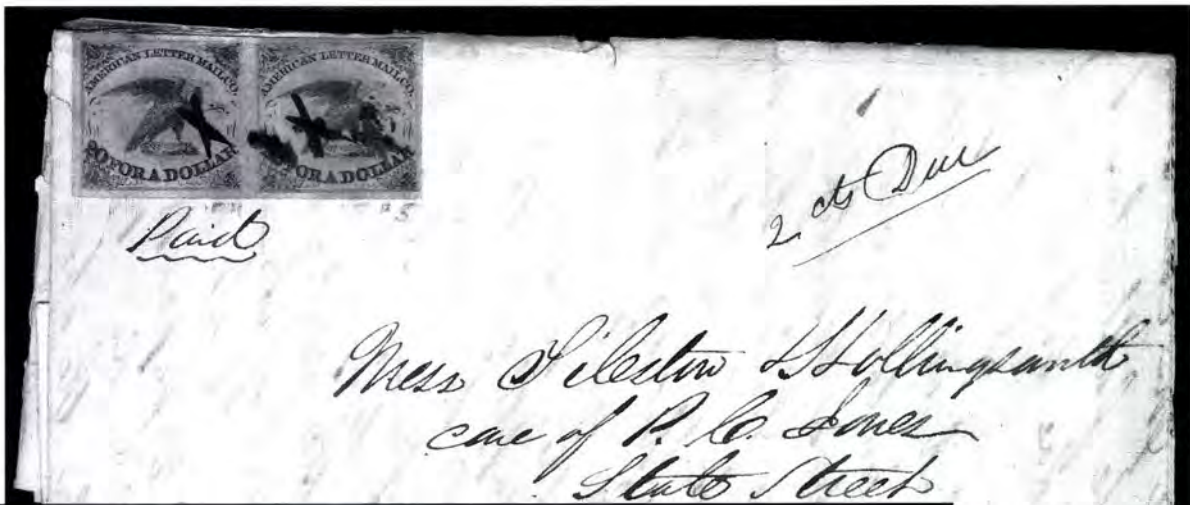 AMERICAN LETTER MAIL CO.
20 FOR A DOLLAR
AMERICAN LETTER MAIL CO.
FOR A DOLLAR
Paid
2 cts Due
Mess Tileston & Hollingsworth
care of P. C. Jones
State Street